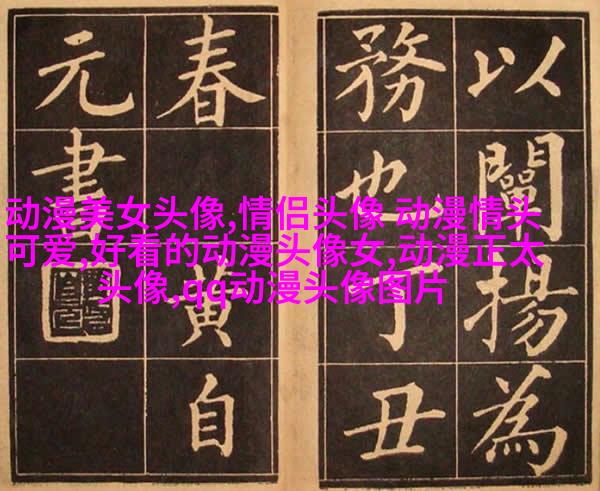 以闡揚為
務也丁丑
春黄自
元書
动漫美女头像,情侣头像 动漫情头
可爱,好看的动漫头像女,动漫正太
头像,qq动漫头像图片